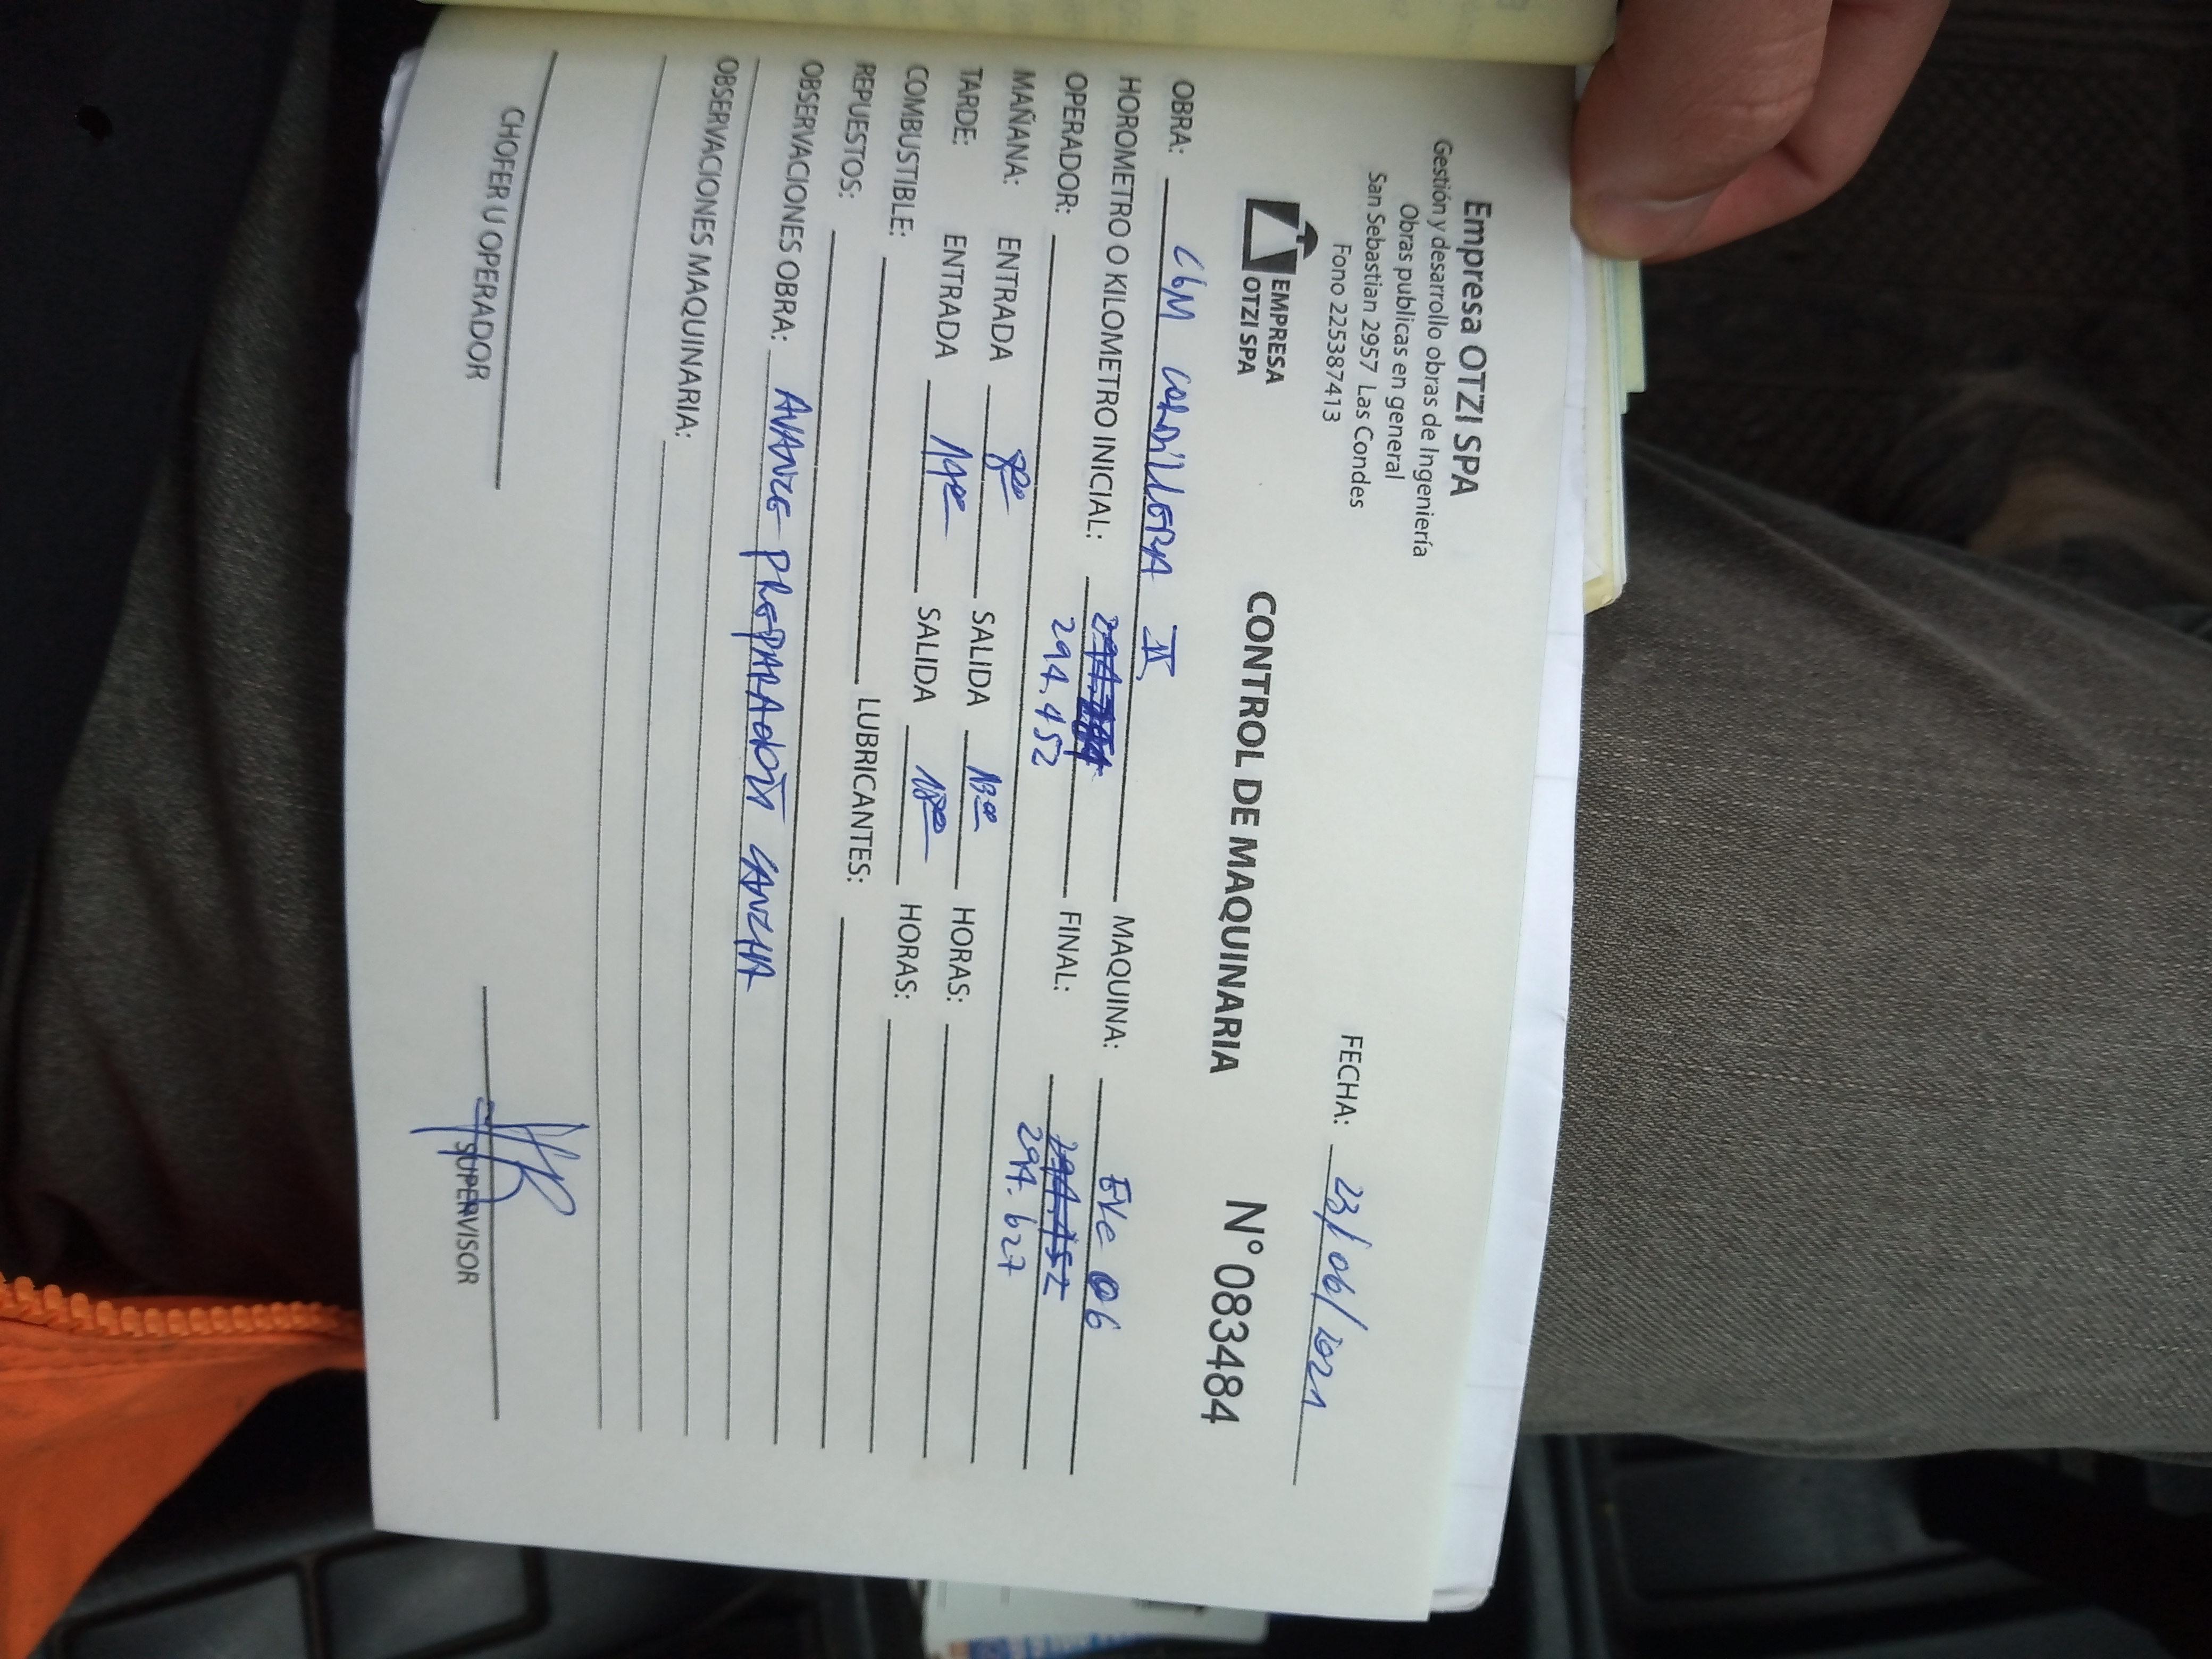 Empresa OTZI SPA
Gestión y desarrollo obras de Ingeniería
Obras publicas en general
San Sebastian 2957 Las Condes
Fono 225387413
FECHA: 23/06/2021
EMPRESA
OTZI SPA
CONTROL DE MAQUINARIA N° 083484
OBRA: CGM CORDILLERA II MAQUINA: EVC 06
HOROMETRO O KILOMETRO INICIAL: 294.452 FINAL: 294.152 294.627
OPERADOR:
MAÑANA: ENTRADA 8:00 SALIDA 13:00 HORAS:
TARDE: ENTRADA 14:00 SALIDA 18:00 HORAS:
COMBUSTIBLE: LUBRICANTES:
REPUESTOS:
OBSERVACIONES OBRA: AVANCE PREPARACIÓN CANCHA
OBSERVACIONES MAQUINARIA:
CHOFER U OPERADOR SUPERVISOR